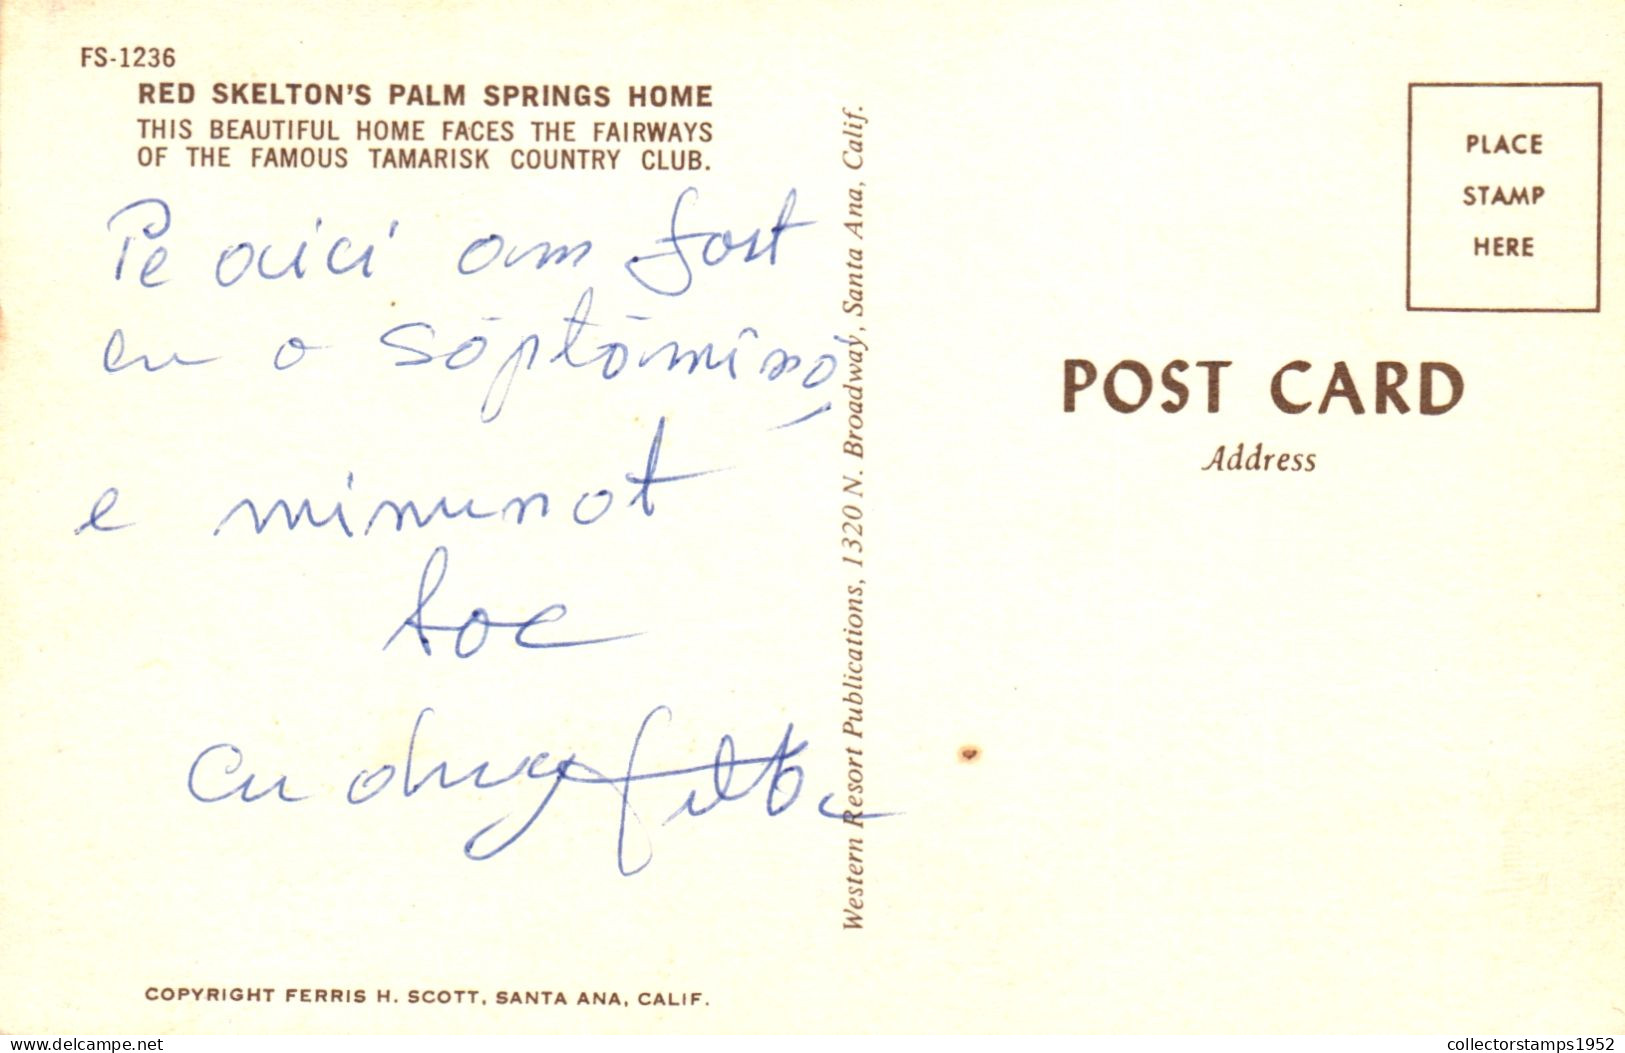 FS-1236
RED SKELTON'S PALM SPRINGS HOME
THIS BEAUTIFUL HOME FACES THE FAIRWAYS
OF THE FAMOUS TAMARISK COUNTRY CLUB.
Pe aici am fost
cu o săptămînă
e minunat
loc
Cu drag
COPYRIGHT FERRIS H. SCOTT, SANTA ANA, CALIF.
Western Resort Publications, 1320 N. Broadway, Santa Ana, Calif.
PLACE
STAMP
HERE
POST CARD
Address
www.delcampe.net
collectorstamps1952